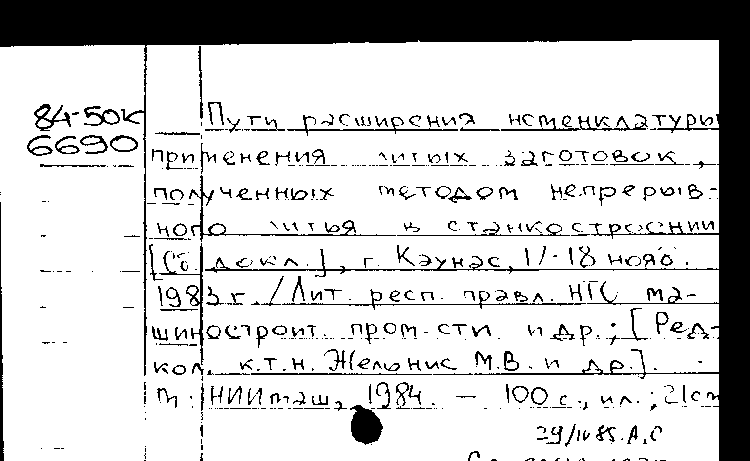 84-50к
6690
Пути расширения номенклатуры
применения литых заготовок,
полученных методом непрерыв-
ного литья в станкостроении
[Сб. докл.], г. Каунас, 17-18 нояб.
1983 г. / Лит. респ. правл. НТО ма-
шиностроит. пром-сти и др.; [Ред-
кол. к.т.н. Жельнис М.В. и др.]. -
М.: НИИмаш, 1984. — 100 с., ил.; 21 см